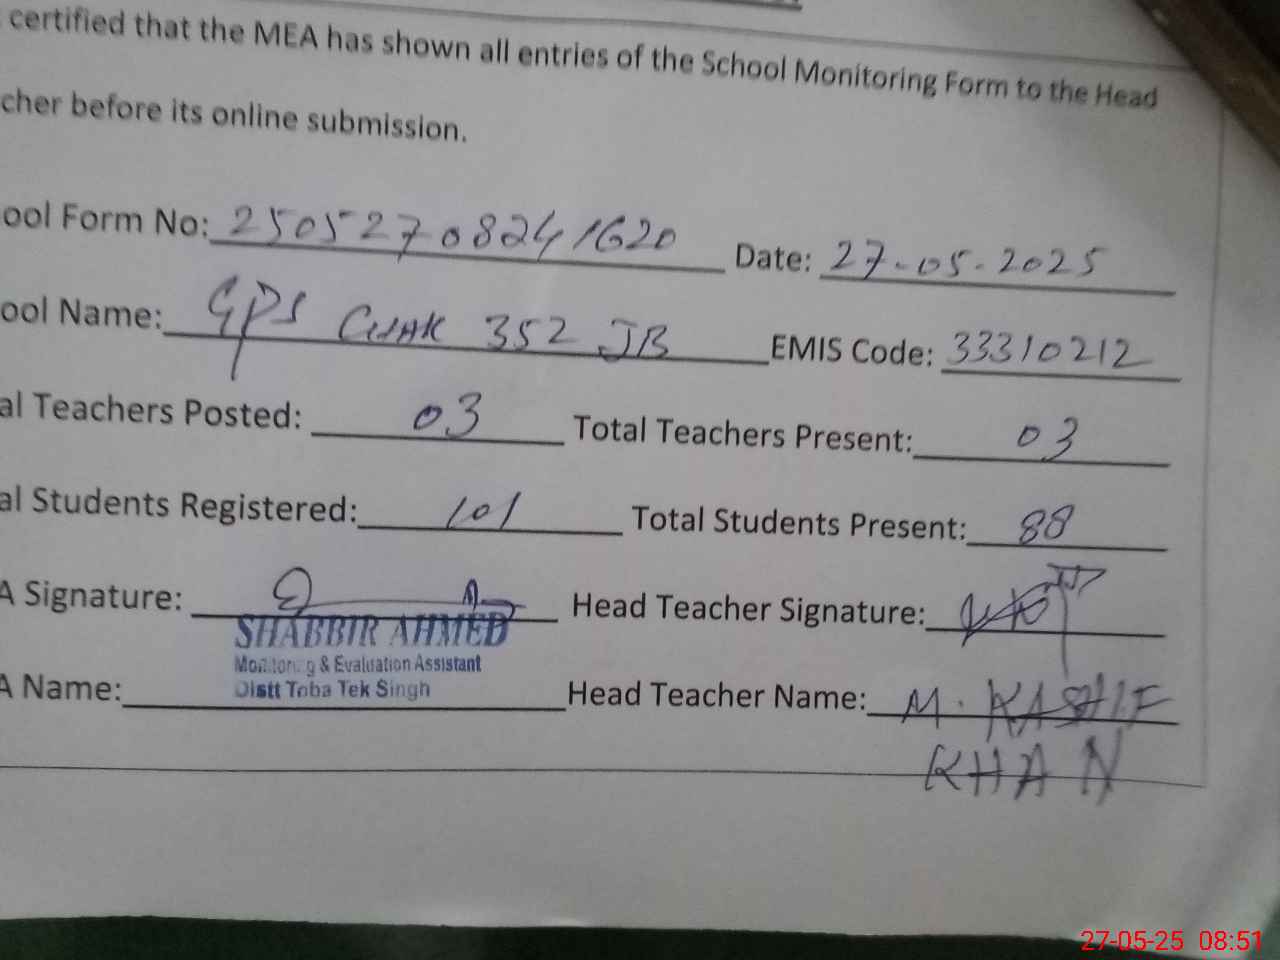 certified that the MEA has shown all entries of the School Monitoring Form to the Head
cher before its online submission.
ool Form No: 25052708241620 Date: 27-05-2025
ool Name: GPS CHAK 352 JB EMIS Code: 33310212
al Teachers Posted: 03 Total Teachers Present: 03
al Students Registered: 101 Total Students Present: 88
A Signature: Head Teacher Signature:
SHABBIR AHMED
Monitoring & Evaluation Assistant
Distt Toba Tek Singh
A Name: Head Teacher Name: M. KASHIF
KHAN
27-05-25 08:51